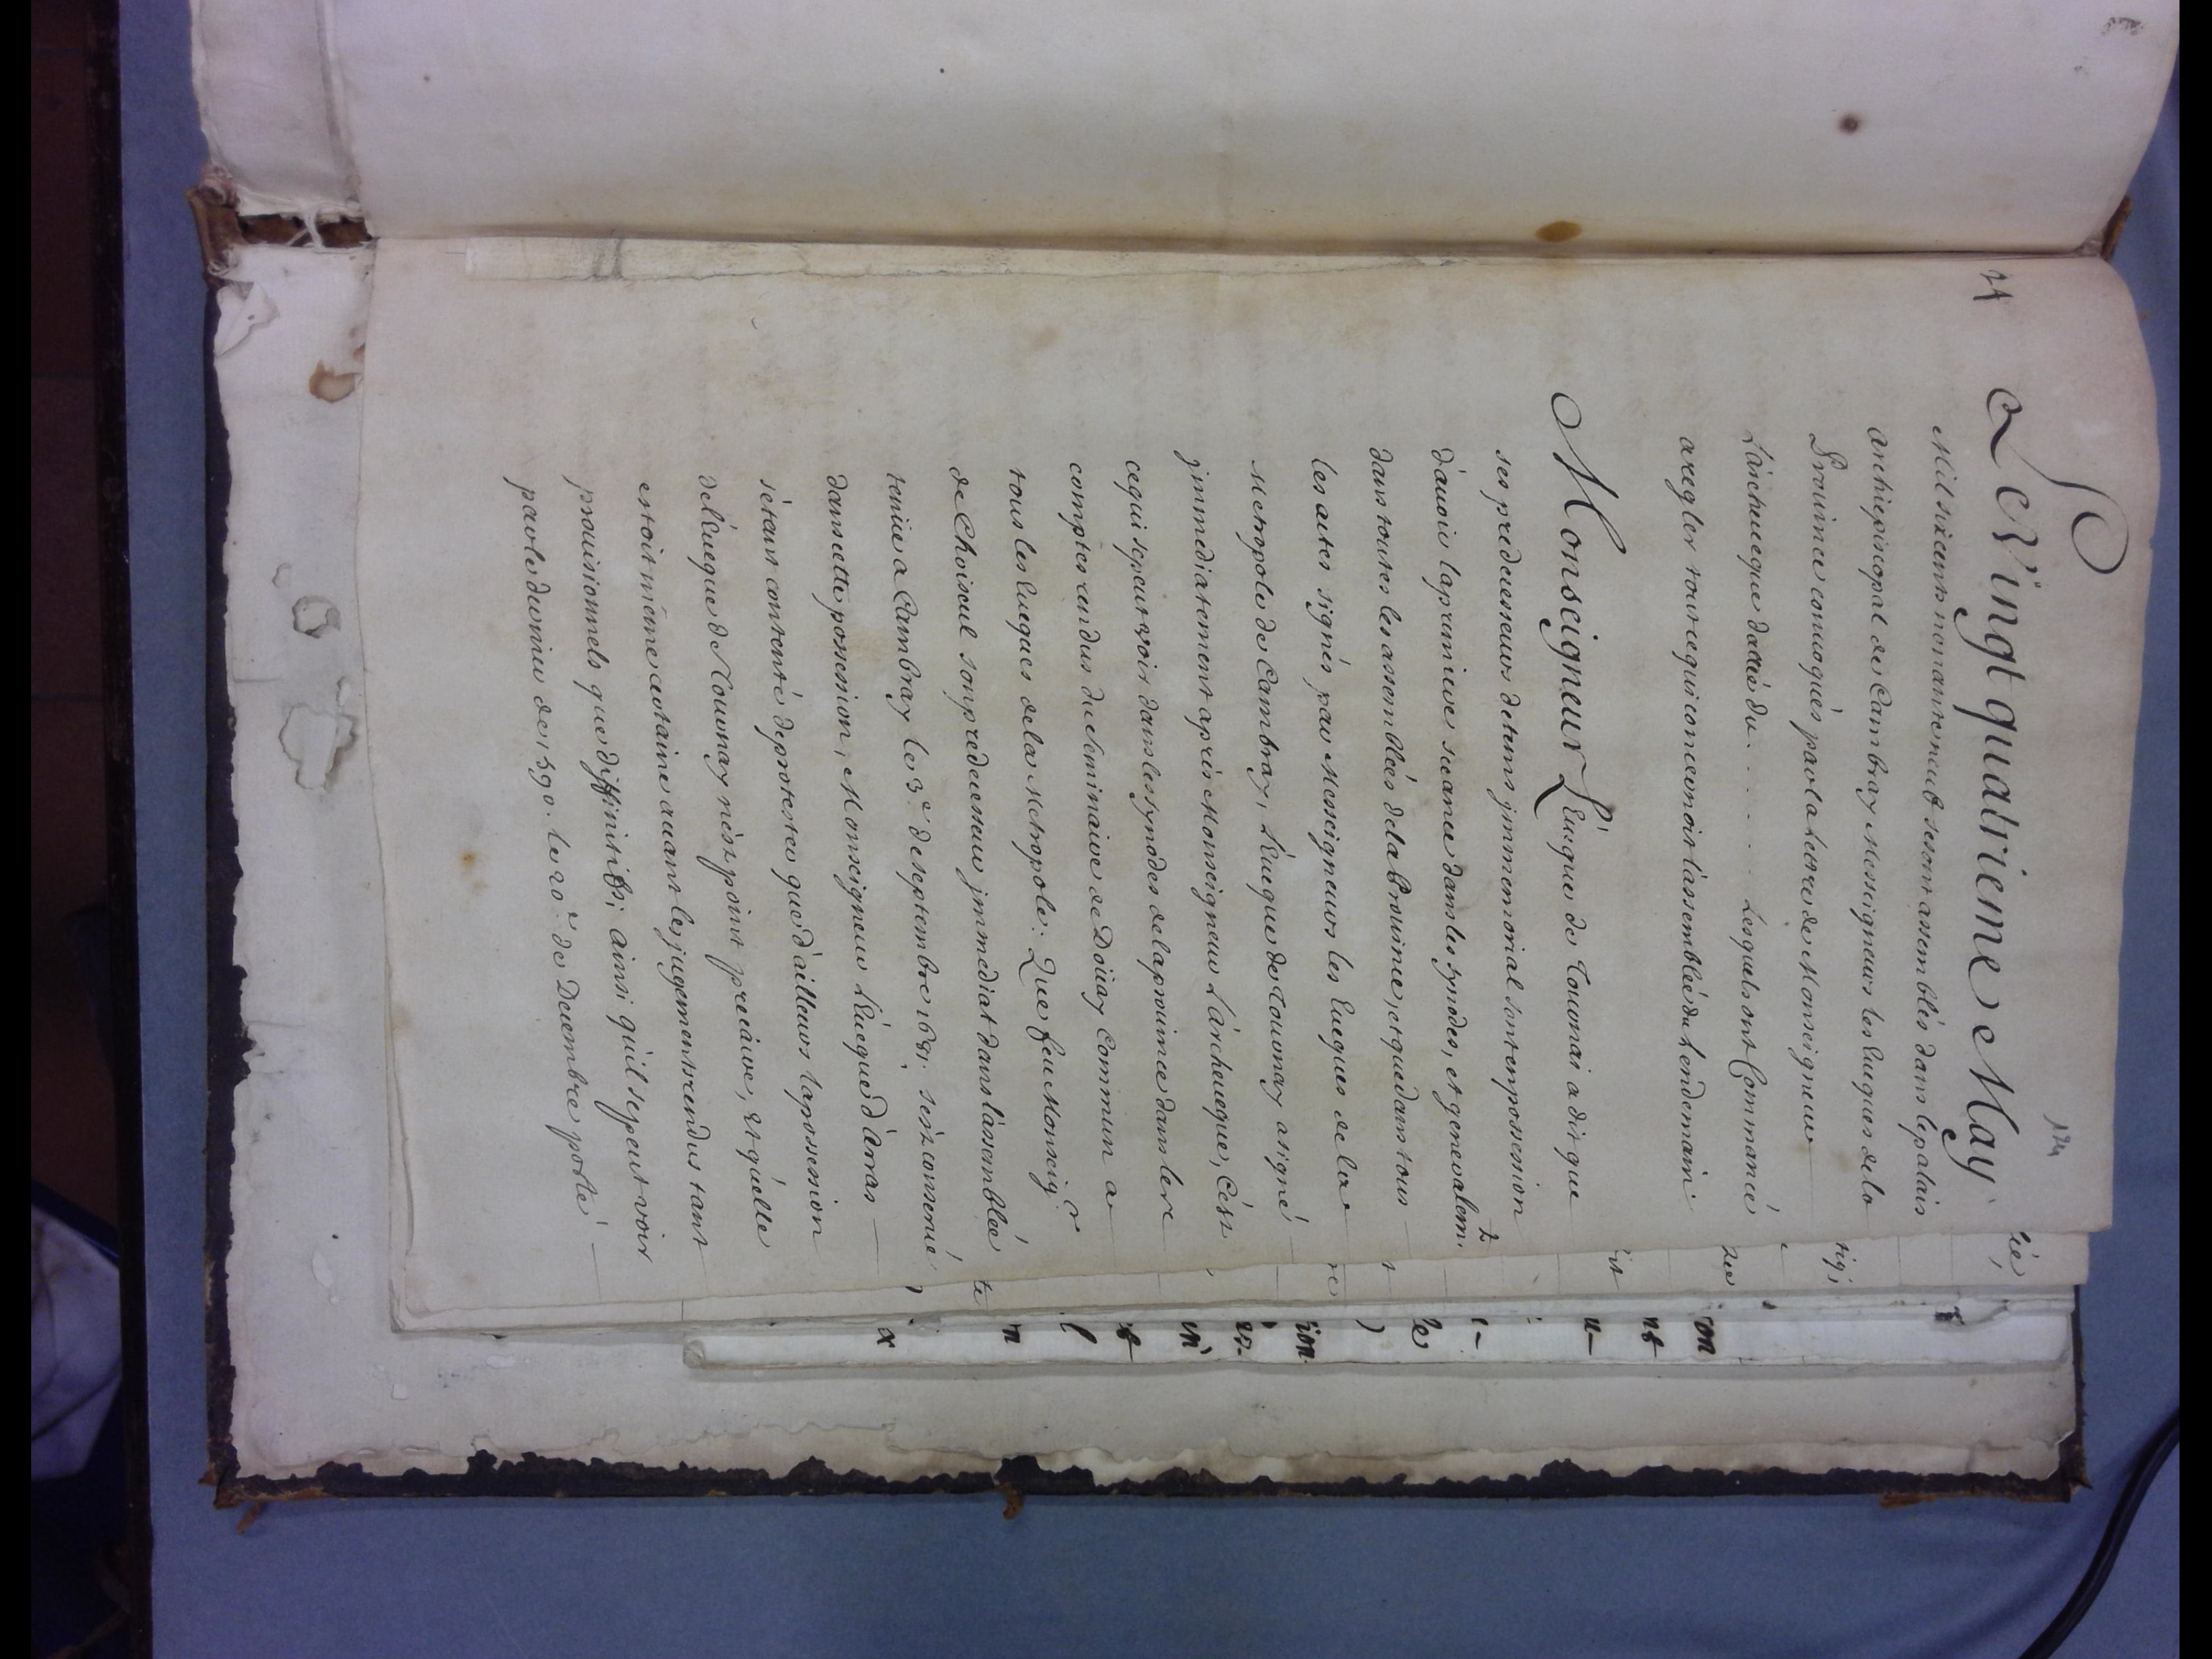 124
24
Le Vingt quatrieme May
Mil six cents nonante neuf se sont assemblés dans le palais
archiepiscopal de Cambray Messeigneurs les Euêques de la
Prouince conuoqués par la lettre de Monseigneur
L'archeueque datée du . . . . . Lesquels ont Commancé
a regler tout ce qui concernoit l'assemblée du lendemain.
Monseigneur L'éuêque de Tournai a dit que
ses predecesseurs de tems jmmemorial sont en possession
d'auoir la premiere sceance dans les synodes, et generalem.t
dans toutes les assemblées de la Prouince, et que dans tous
les actes signés par Messeigneurs les Eueques de la
Metropole de Cambray, L'éueque de Tournay a signé
jmmediatement aprés Monseigneur L'archeueque, C'ést
ce qui se peut voir dans les synodes de la prouince dans les
comptes rendus du Seminaire de Doüay Commun a
tous les Eueques de la Metropole: Que feu Monseig.r
de Choiseul son prédecesseur jmmediat dans l'assemblée
tenüe a Cambray le 3.e de septembre 1681. s'ést conserué
dans cette possession, Monseigneur L'éueque d'arras
s'étant contenté de protester que d'ailleurs la possession
de l'éueque de Tournay n'ést point precaire, et qu'elle
estoit méme certaine auant les jugements rendus tant
prouisionnels que diffinitifs; ainsi qu'il se peut voir
par le dernier de 1590. le 20.e de Decembre porté